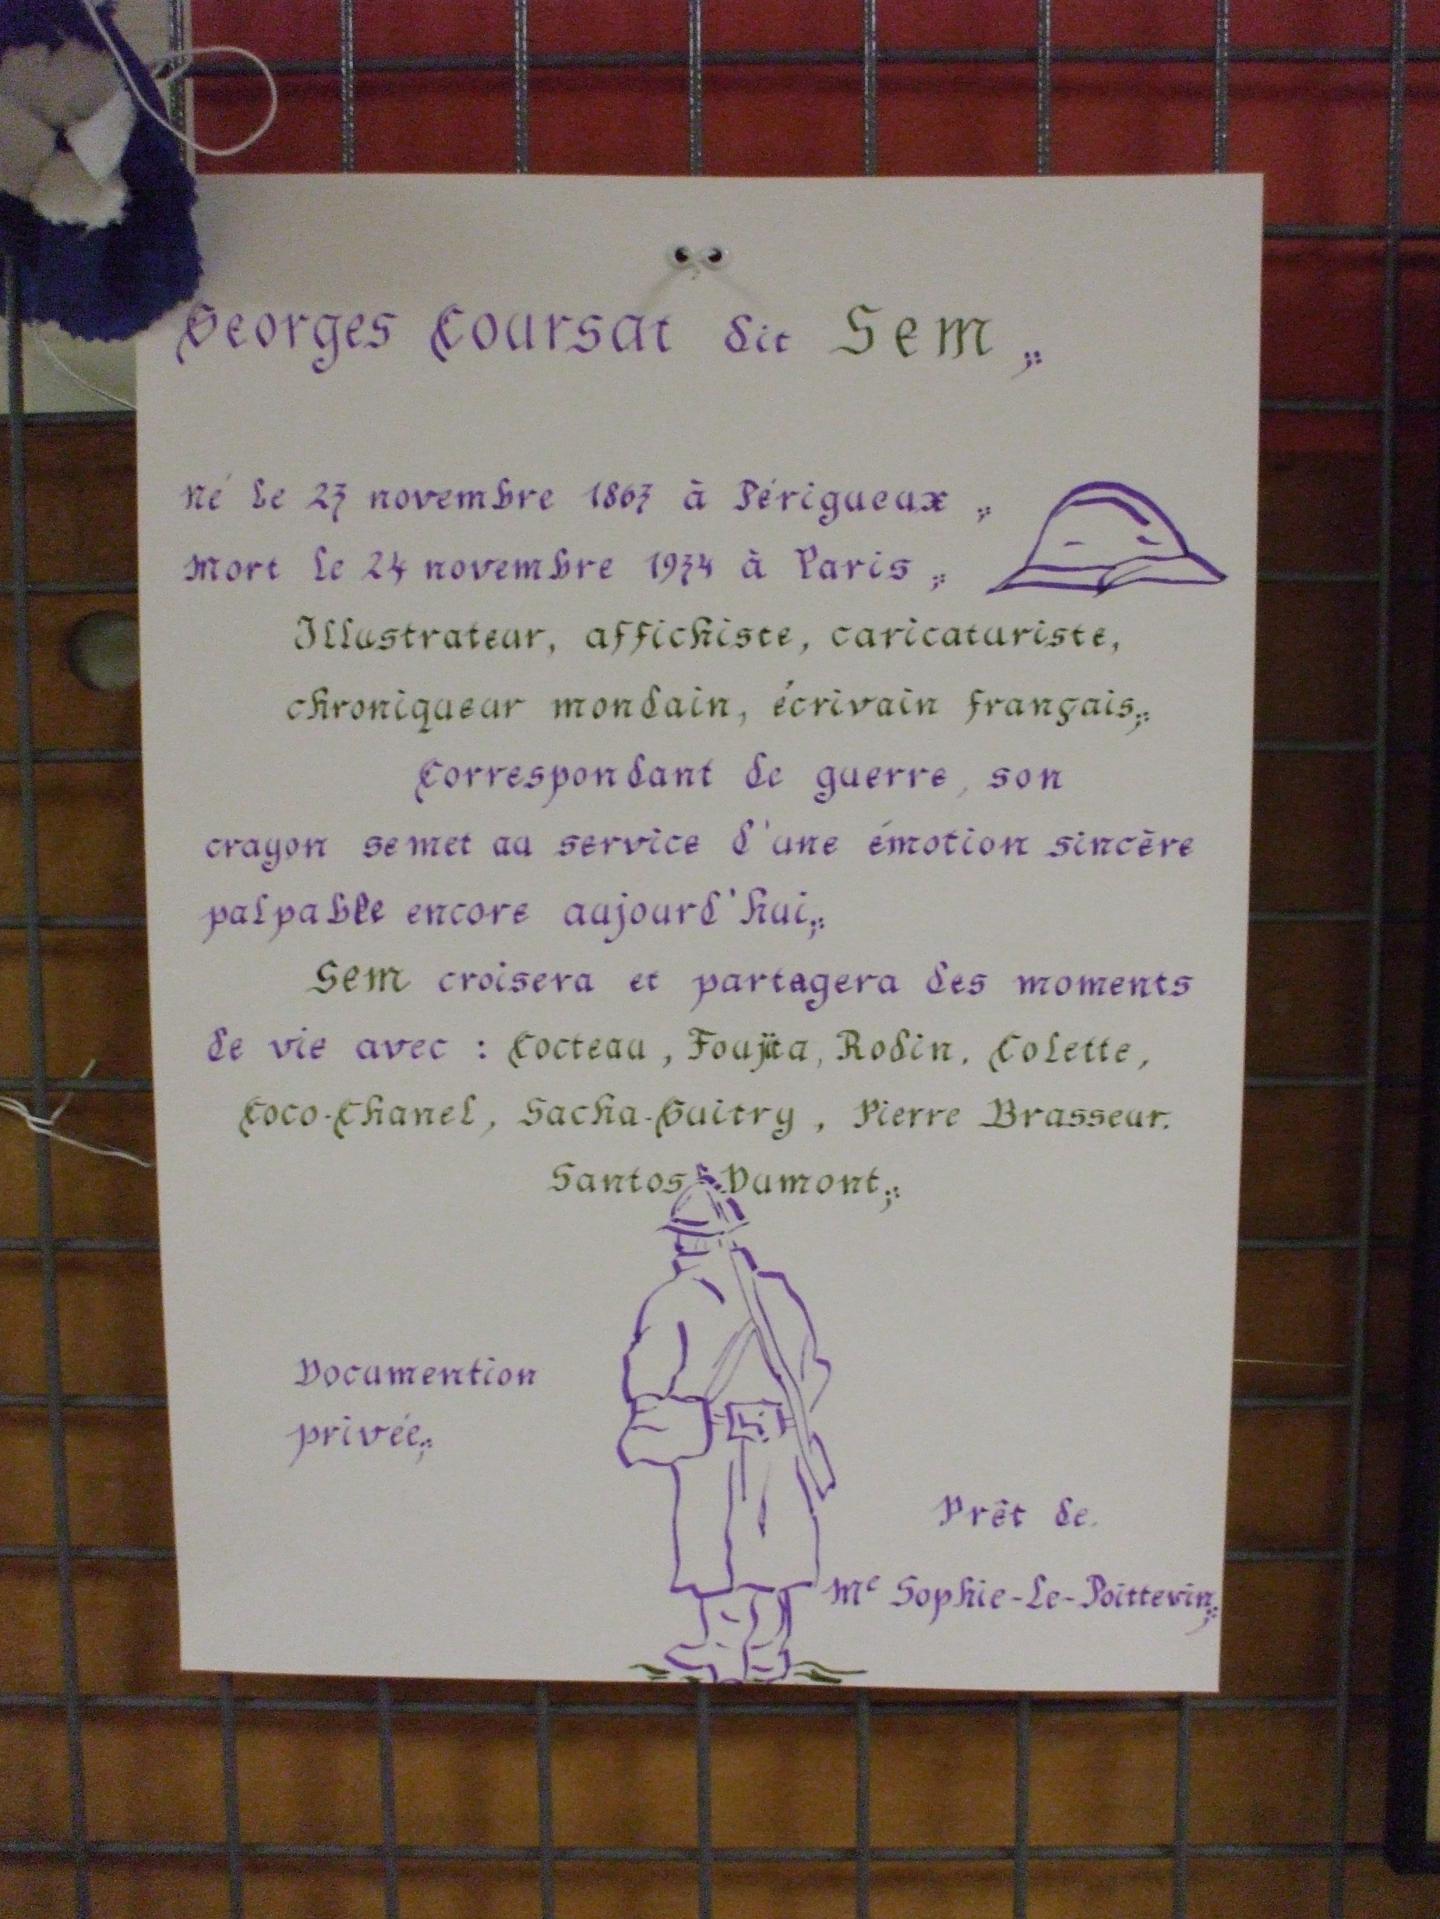 Georges Coursat dit Sem
Né le 23 novembre 1863 à Périgueux
Mort le 24 novembre 1934 à Paris
Illustrateur, affichiste, caricaturiste,
chroniqueur mondain, écrivain français
Correspondant de guerre, son
crayon se met au service d'une émotion sincère
palpable encore aujourd'hui
Sem croisera et partagera des moments
de vie avec : Cocteau, Foujita, Rodin, Colette,
Coco-Chanel, Sacha-Guitry, Pierre Brasseur.
Santos-Dumont
Documention
privée
Prêt de
Me Sophie-Le-Poittevin